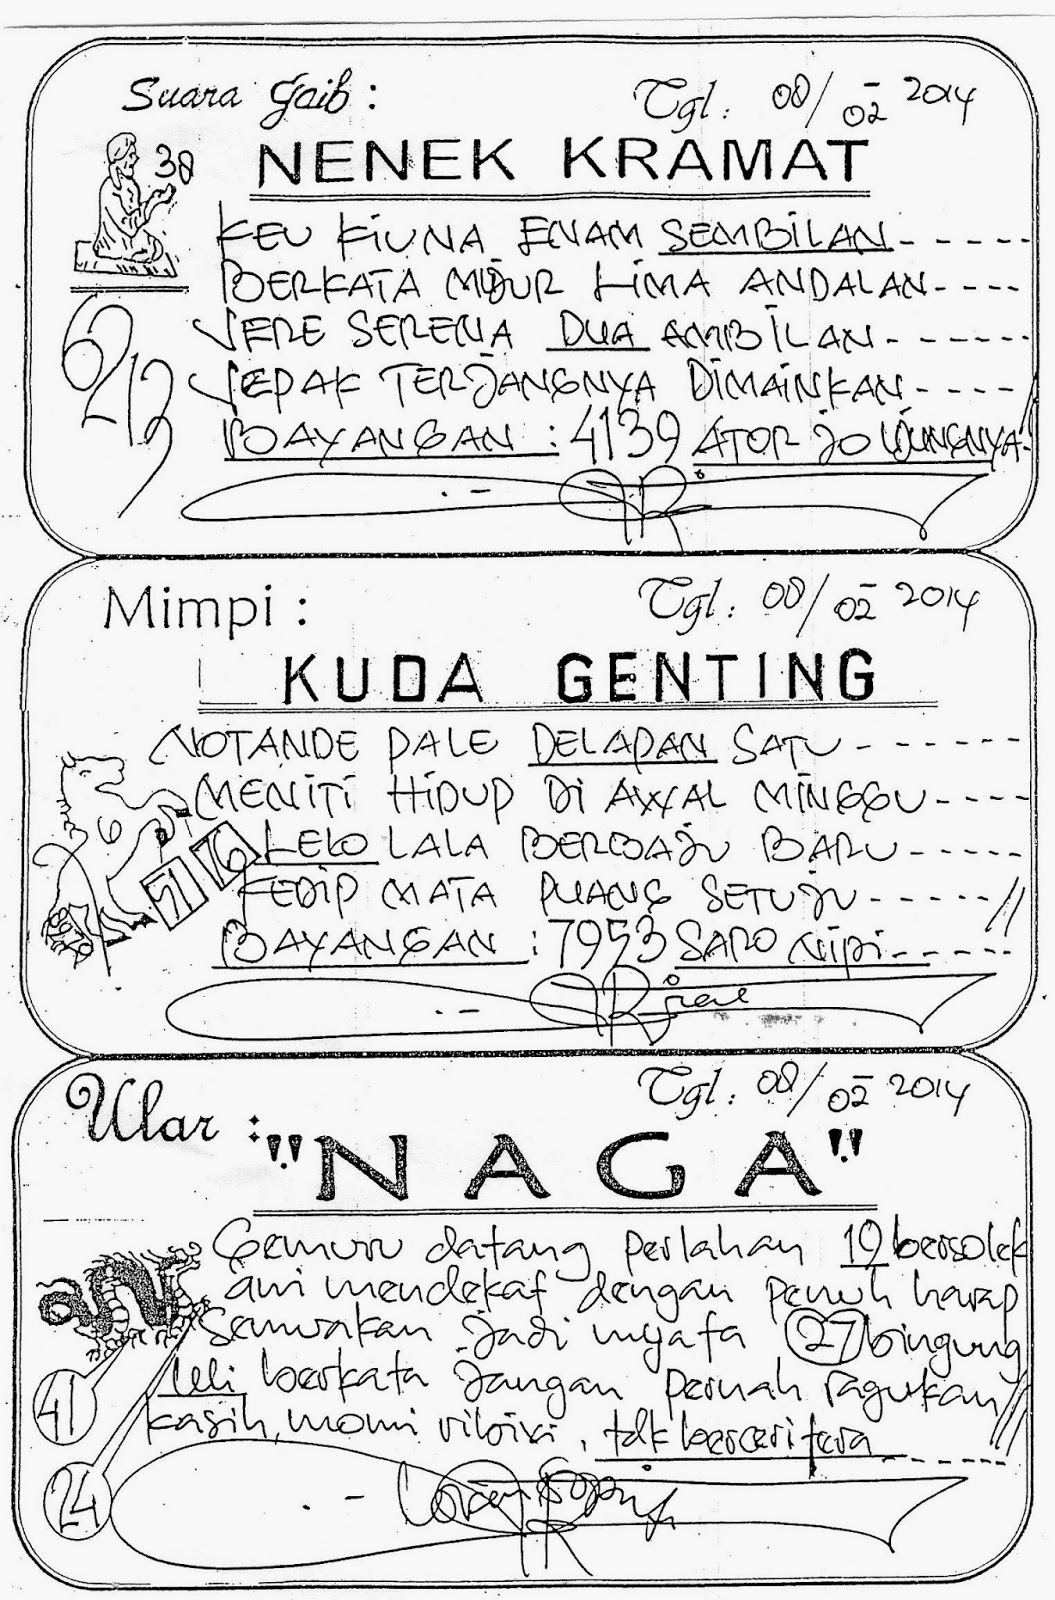 Suara Gaib : Tgl : 08/02 2014
38 NENEK KRAMAT
KEU KIUNA ENAM SEMBILAN
BERKATA LIMA ANDALAN
VERE SERENA DUA AMBILAN
SEPAK TERJANGNYA DIMAINKAN
BAYANGAN : 4139 ATOR JO UJUNGNYA
Mimpi : Tgl : 08/02 2014
KUDA GENTING
NOTANDE PALE DELAPAN SATU
MENITI HIDUP DI AWAL MINGGU
LELO LALA BERBAJU BARU
6
71 6
KEDIP MATA PUANG SETUJU
BAYANGAN : 7953 SARO NIPI
Ular : Tgl : 08/02 2014
"NAGA"
Gemuru datang perlahan 19 bersolek
mendekat dengan penuh harap
Semuakan jadi nyata 27 bingung
leli berkata jangan pernah ragukan
41
kasih, momi , tdk berceritera
24